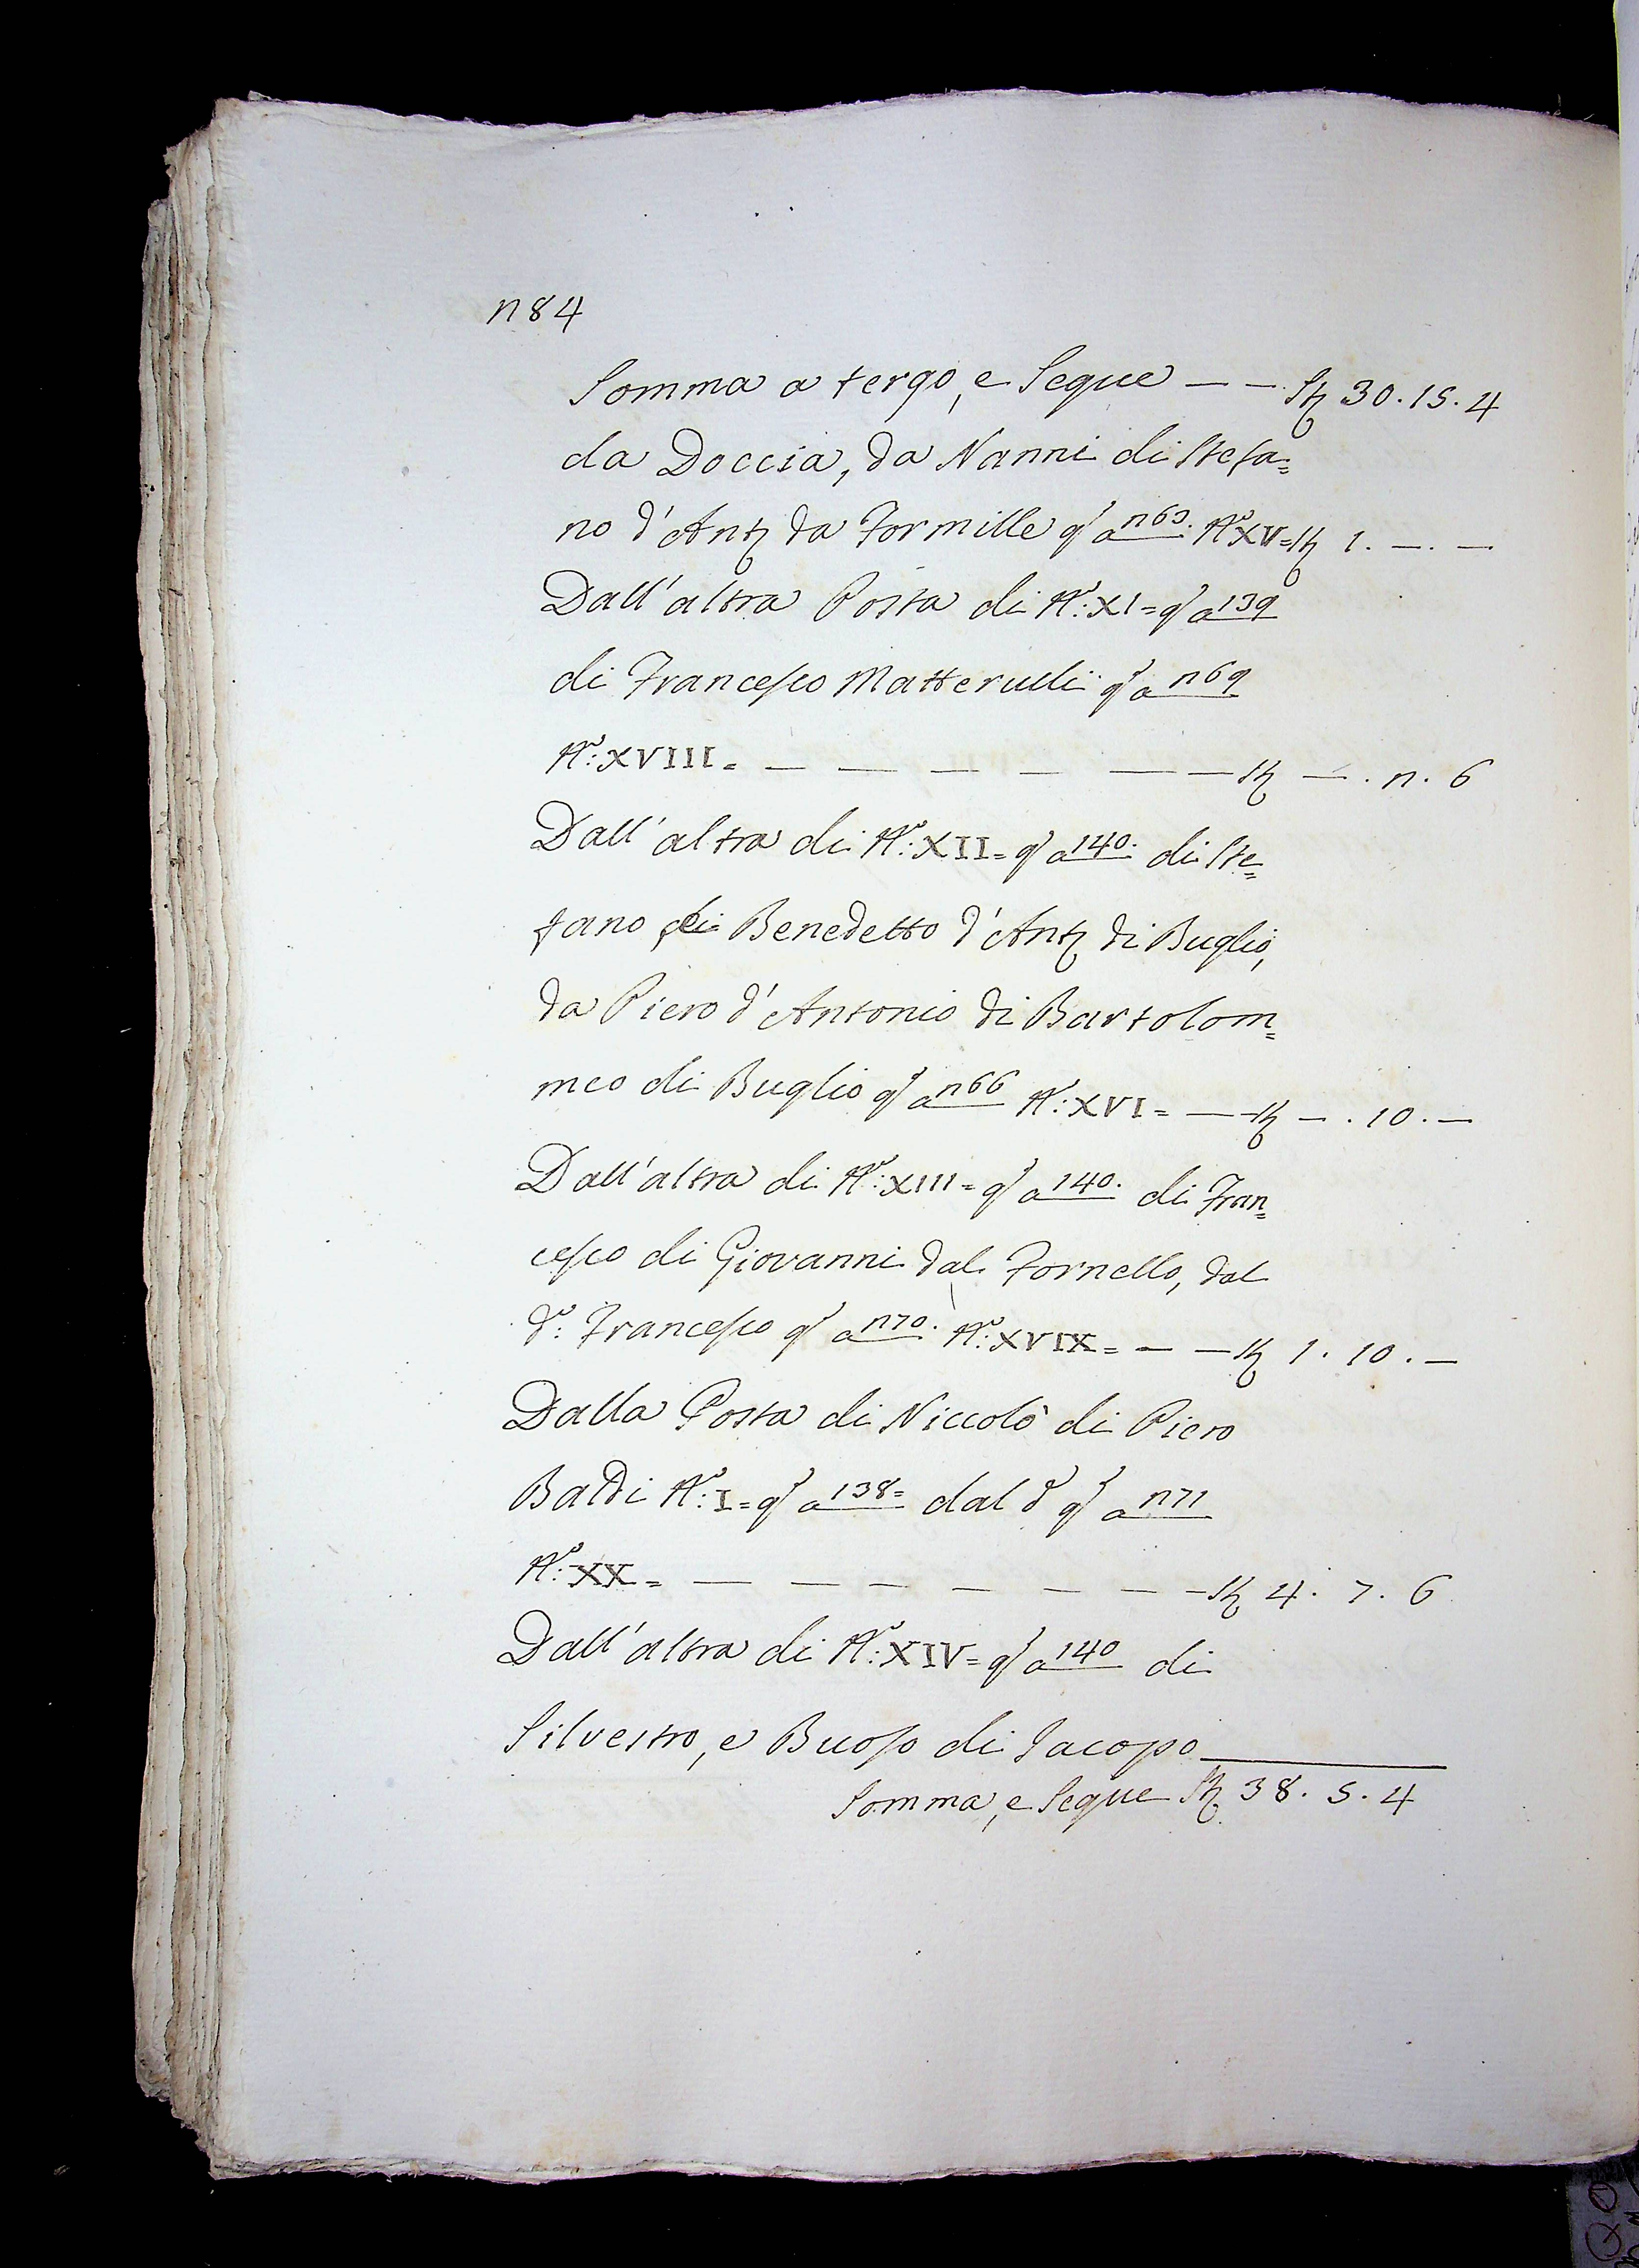 n84
Somma a tergo, e Segue — — Sti 30.15.4
da Doccia, da Nanni di Stefa=
no d'Anto da Formille qo a n63. No XV = Sti 1. —. —
Dall'altra Posta di No: XI = qo a 139
di Francesco Matterulli qo a n69
No: XVIII = — — — — — — Sti —. n. 6
Dall'altra di No: XII = qo a 140. di Ste=
fano di Benedetto d'Anto di Buglio,
da Piero d'Antonio di Bartolom=
meo di Buglio qo a n66 No: XVI = — Sti —. 10. —
Dall'altra di No: XIII = qo a 140. di Fran=
cesco di Giovanni dal Fornello, dal
do: Francesco qo a n70. No: XVIX = — — Sti 1. 10. —
Dalla Posta di Niccolò di Piero
Baldi No: I = qo a 138 = dal do qo a n71
No: XX = — — — — — — Sti 4. 7. 6
Dall'altra di No: XIV = qo a 140 di
Silvestro, e Buoso di Jacopo
Somma, e Segue Sti 38. 5. 4